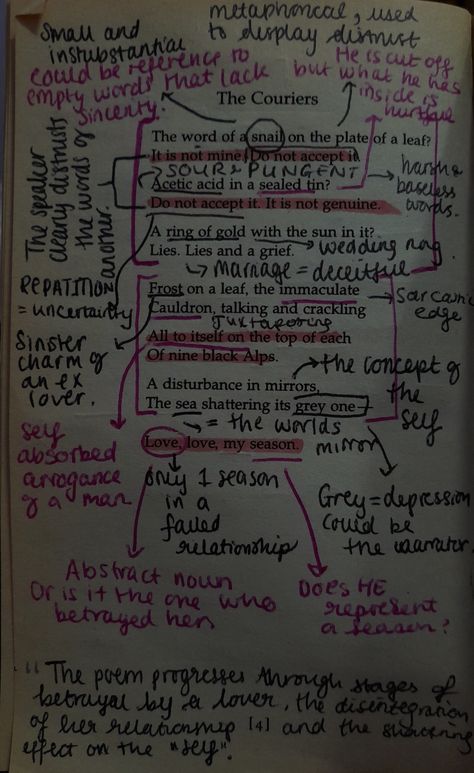 metaphorical, used
to display distrust
Small and
instubstantial
could be reference to
empty words that lack
sincerity.
He is cut off
but what he has
inside is
hurtful
The Couriers
The word of a snail on the plate of a leaf?
It is not mine. Do not accept it.
SOUR & PUNGENT
Acetic acid in a sealed tin?
Do not accept it. It is not genuine.
harsh &
baseless
words.
The speaker
clearly distrusts
the words of
another.
A ring of gold with the sun in it?
wedding ring.
Lies. Lies and a grief.
Marriage = deceitful
REPATITION
= uncertainty
Frost on a leaf, the immaculate
Sarcastic
edge
Cauldron, talking and crackling
Juxtaposing
All to itself on the top of each
Of nine black Alps.
Sinster
charm of
an ex
lover.
the concept of
the
self
A disturbance in mirrors,
The sea shattering its grey one –
= the worlds
mirror
Love, love, my season.
self
absorbed
arrogance
of a man
only 1 season
in a
failed
relationship
Grey = depression
could be
the narrator.
Abstract noun
Or is it the one who
betrayed her
Does HE
represent
a season?
" The poem progresses through stages of
betrayal by a lover, the disintegration
of her relationship [4] and the
effect on the "self".